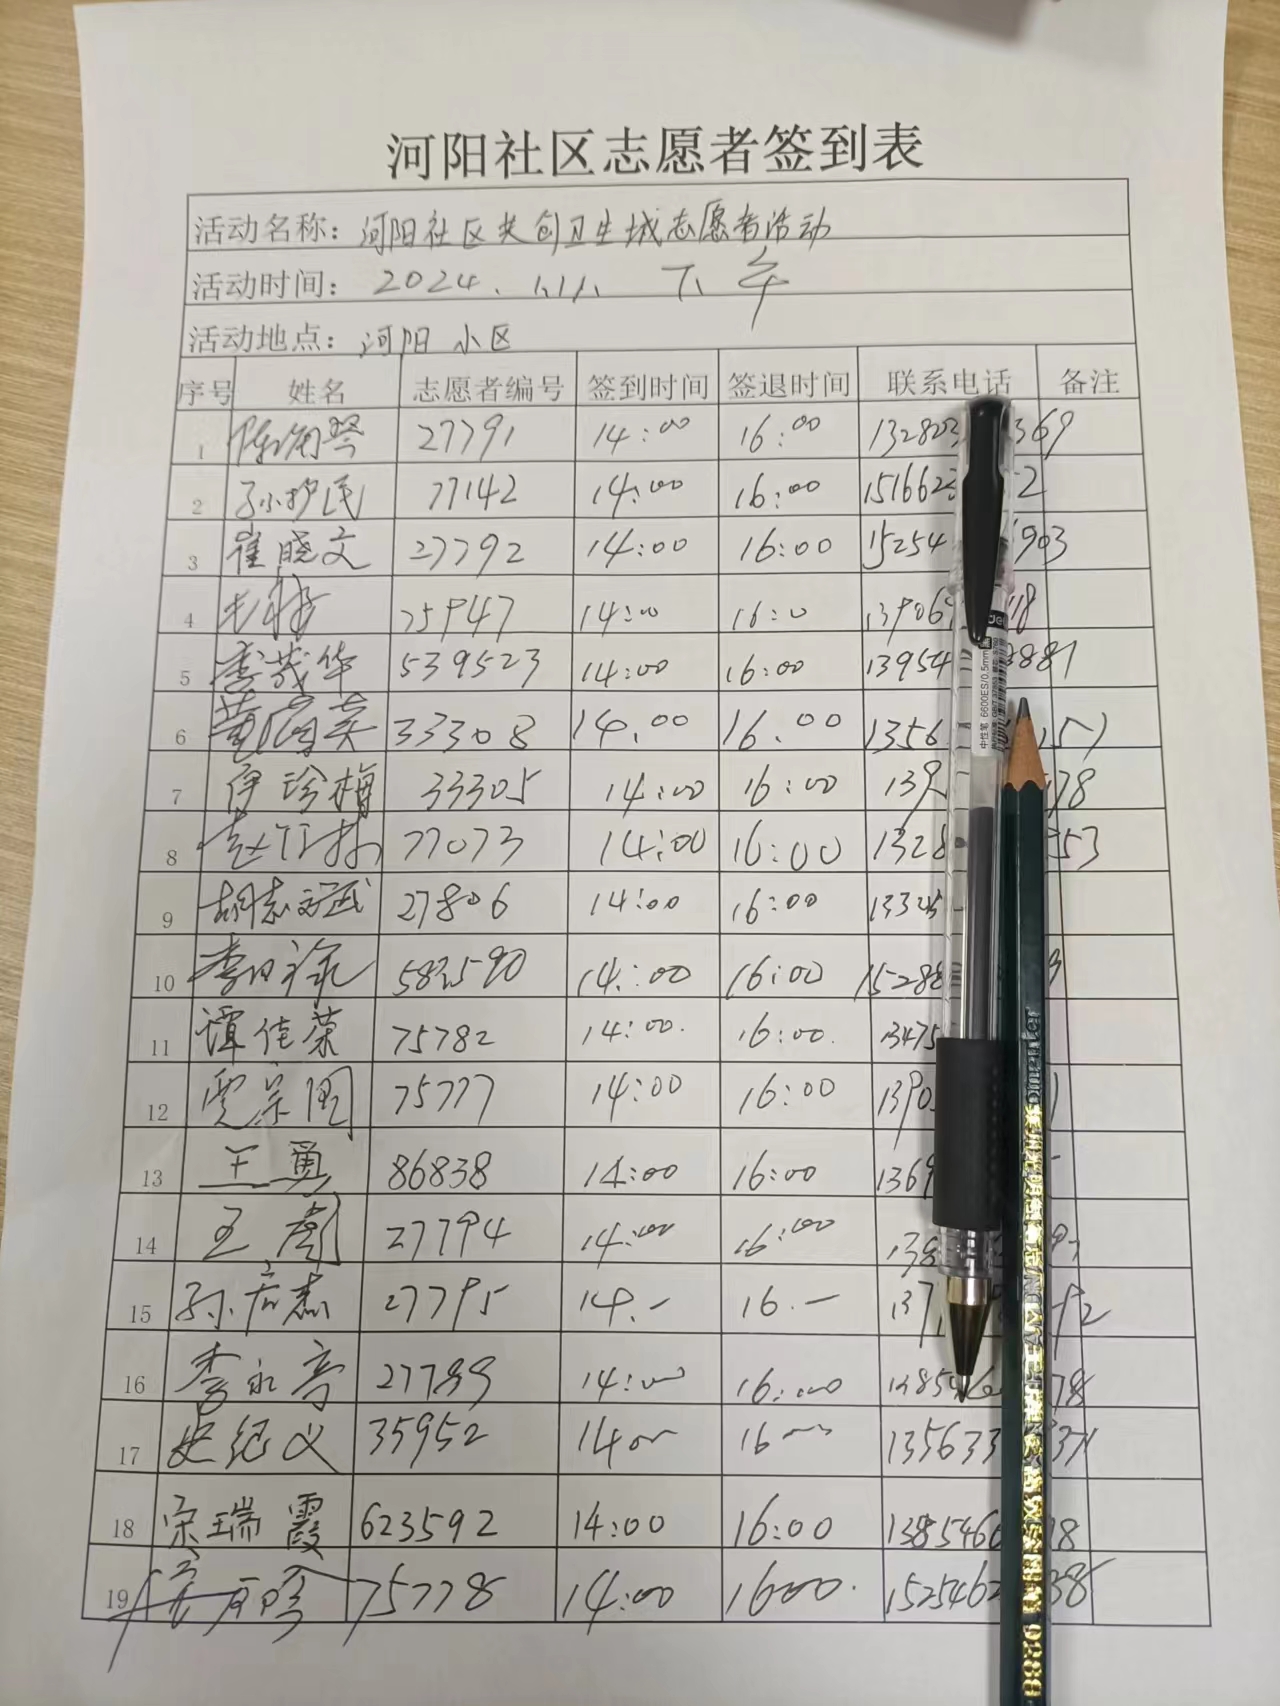 河阳社区志愿者签到表
活动名称：河阳社区共创卫生城志愿者活动
活动时间：2024.1.11. 下午
活动地点：河阳小区
序号 姓名 志愿者编号 签到时间 签退时间 联系电话 备注
1 27791 14:00 16:00 132803 369
2 孙护民 77142 14:00 16:00 1516623 2
3 崔晓文 27792 14:00 16:00 15254 903
4 75947 14:00 16:0 13906 18
5 李茂华 539523 14:00 16:00 13954 3881
6 33308 14.00 16.00 1356 157
7 伊珍梅 33305 14:00 16:00 139 78
8 77073 14:00 16:00 1328 53
9 胡志武 27806 14:00 16:00 13345
10 583590 14:00 16:00 15288
11 谭佳荣 75782 14:00. 16:00. 13475
12 贾宗国 75777 14:00 16:00 1390 1
13 王勇 86838 14:00 16:00 1369
14 王彪 27794 14:00 16:00 138
15 27795 14.— 16.— 137 92
16 李永亭 27789 14:00 16:00 13854 78
17 史纪义 35952 14 16 135633 371
18 宋瑞霞 623592 14:00 16:00 1385466 18
19 75778 14:00 1600. 1525462 38
中性笔 6600ES/0.5mm
deli